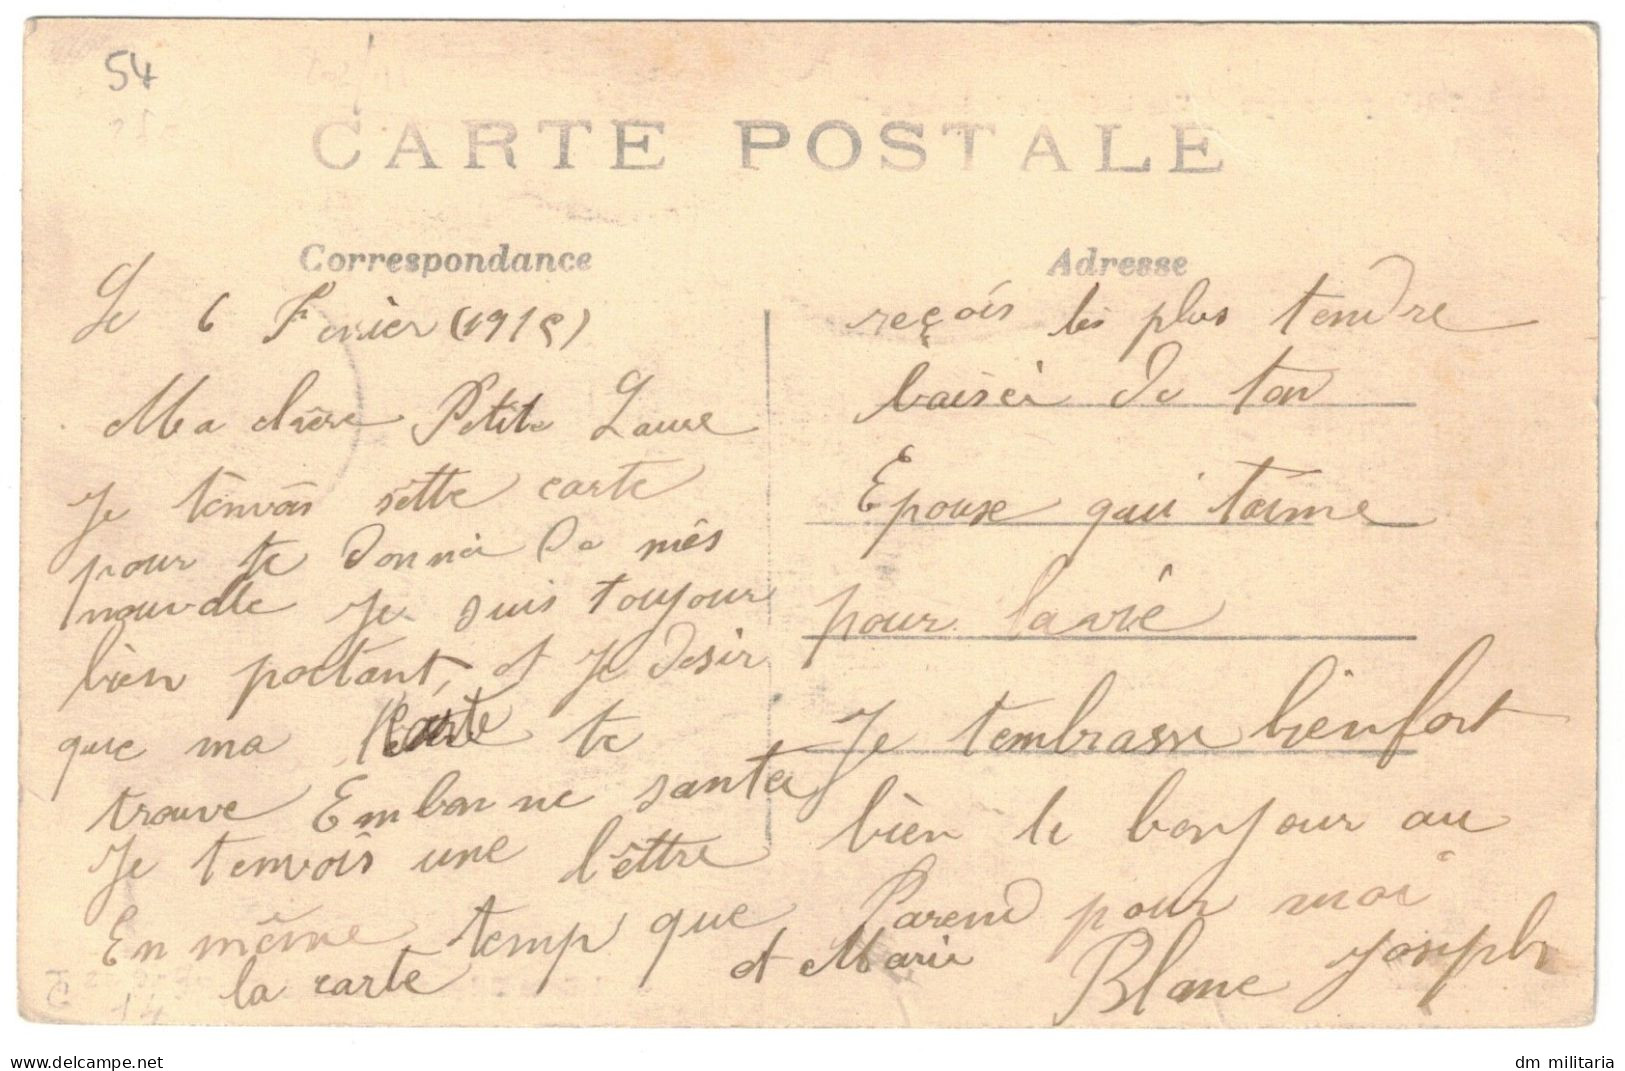 54
CARTE POSTALE
Correspondance
Le 6 Fevrier (1915)
Ma chère Petite Laure
Je t'envois sette carte
pour te donnér de mês
nouvelle Je suis toujour
bien portant, et Je desir
que ma carte te
trouve En bonne santer
Je t'envois une lêttre
En même temp que
la carte
Adresse
reçois les plus tendre
baisér de ton
Epouse qui t'aime
pour la vie
Je tembrasse bien fort
bien le bonjour au
Parend pour moi
et Marie
Blanc Joseph
dm_militaria
www.delcampe.net